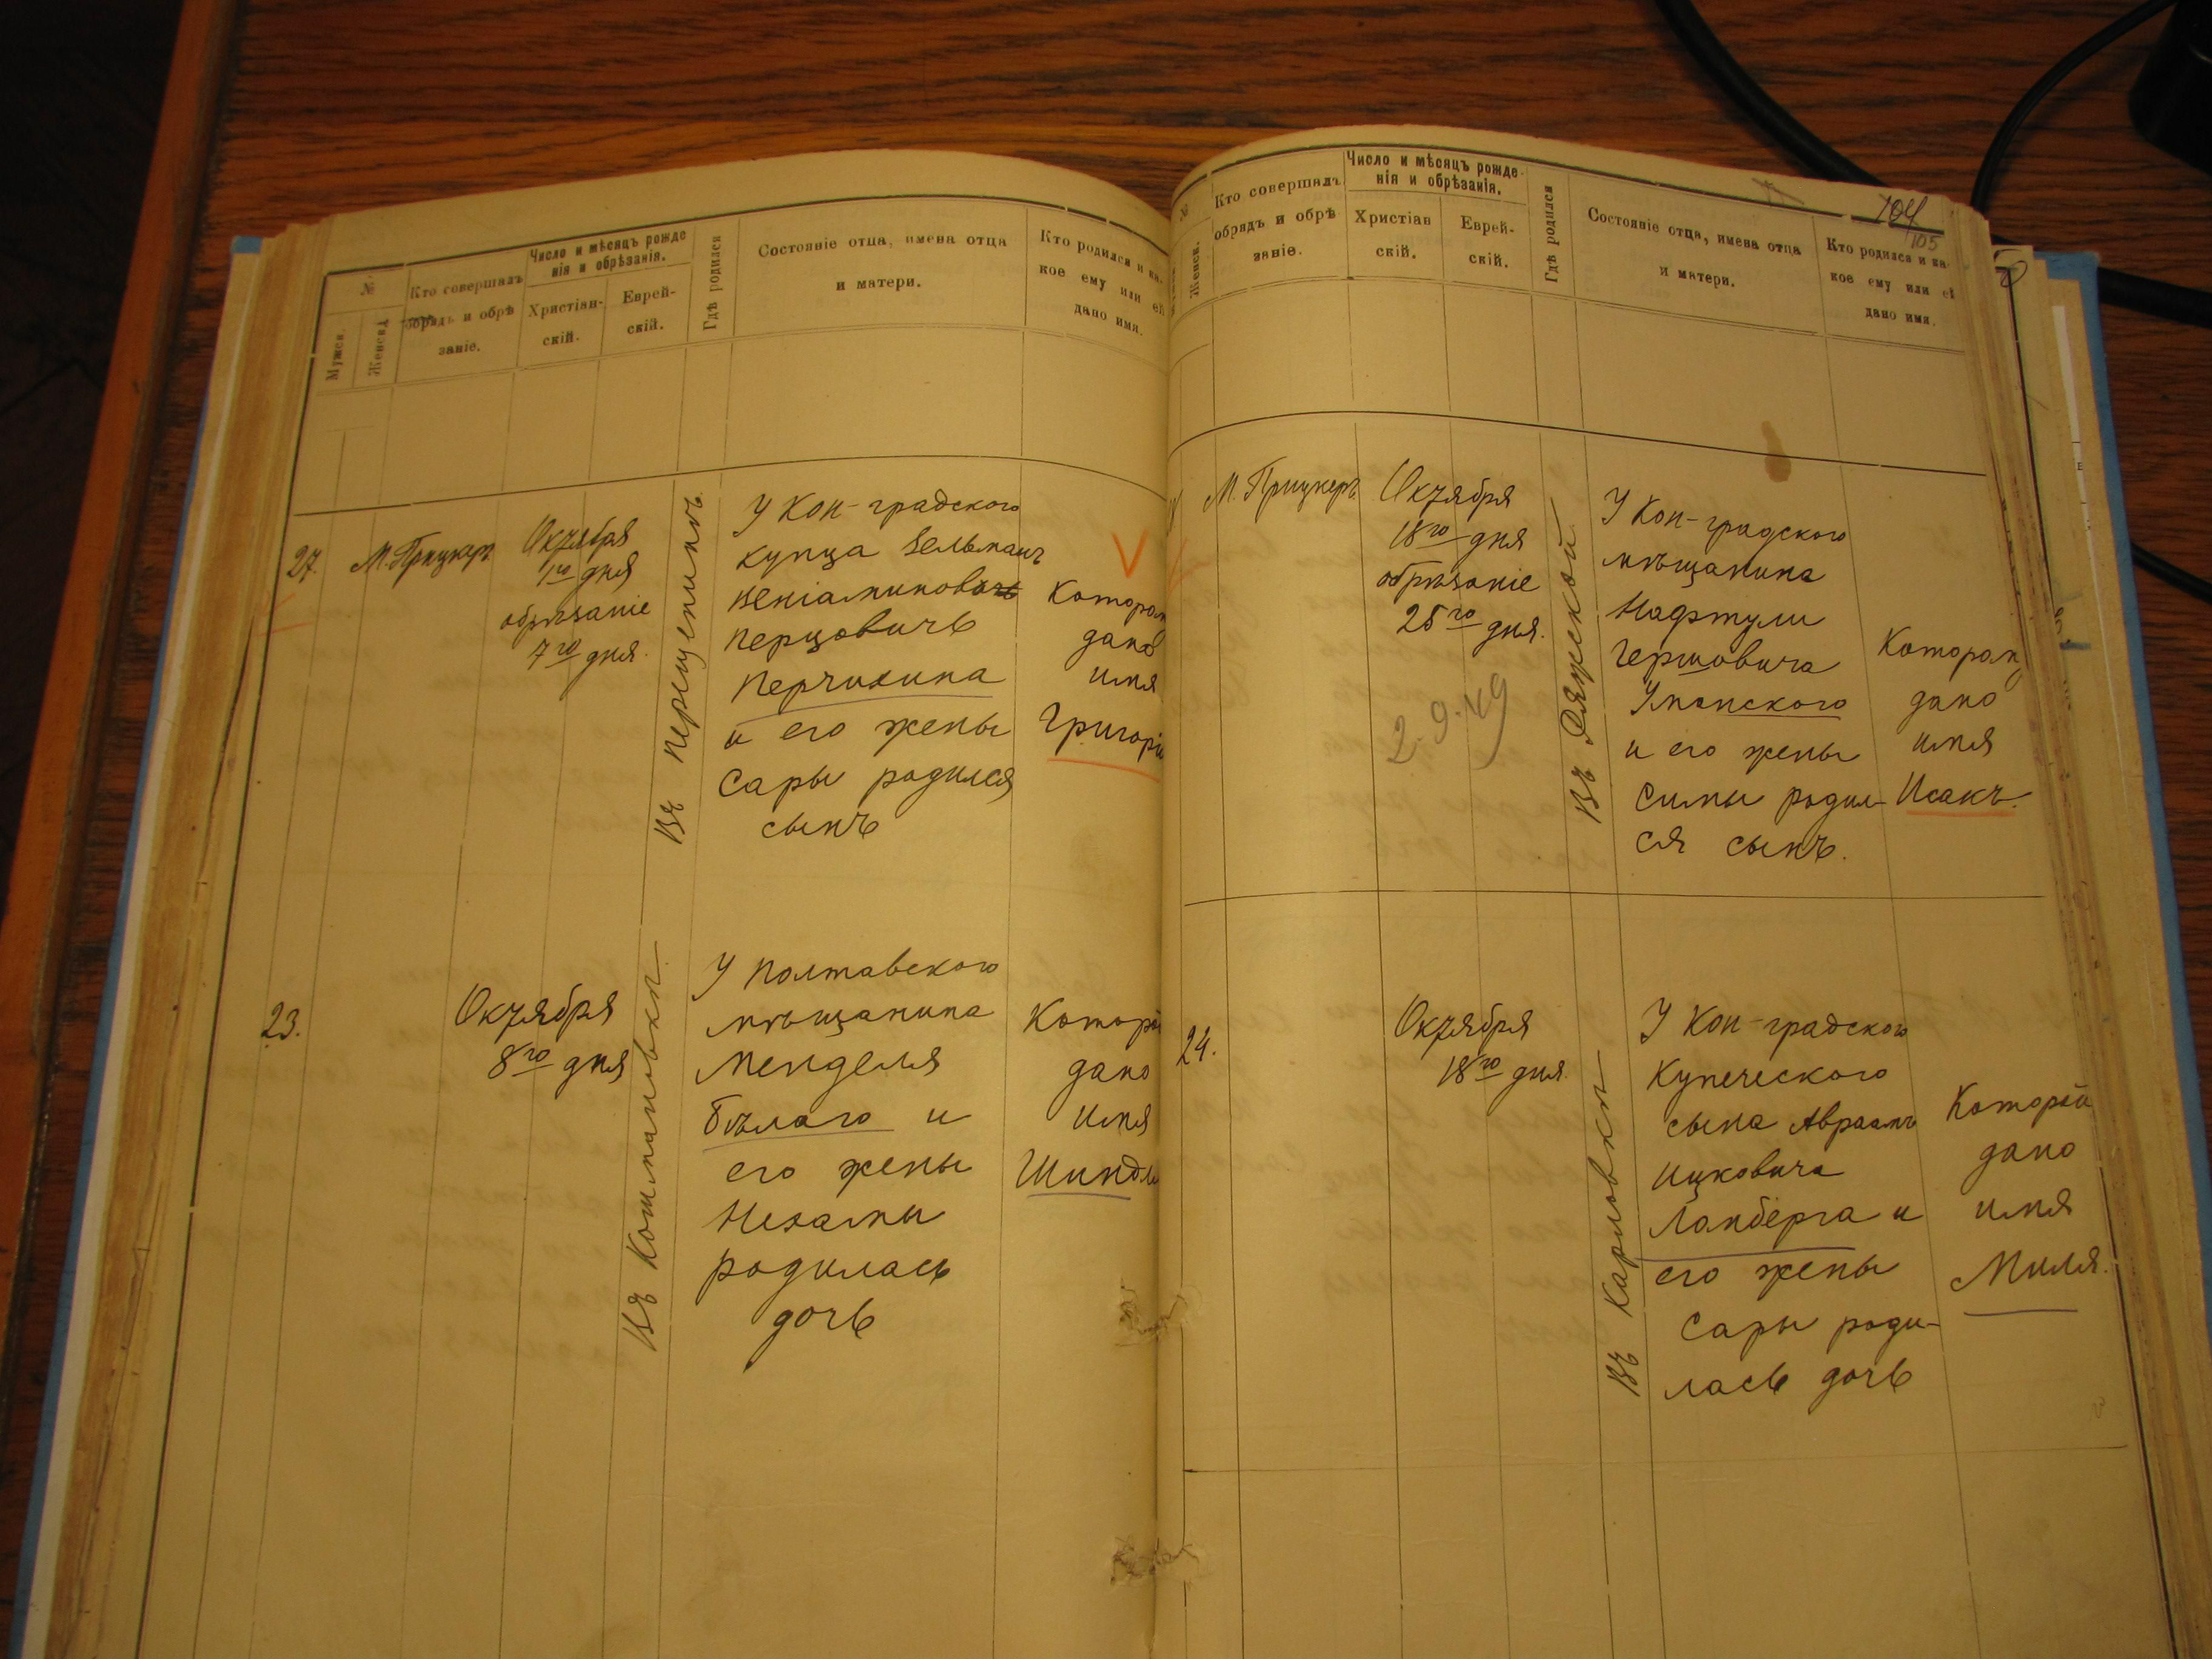 №
Мужск
Женска
Кто совершалъ
обрядъ и обрѣ
заніе.
Число и мѣсяцъ рожде
нія и обрѣзанія.
Христіан-
скій.
Еврей-
скій.
Гдѣ родился
Состояніе отца, имена отца
и матери.
Кто родился и ка-
кое ему или ей
дано имя.
27.
М. Прицкеръ
Октября
1го дня
обрѣзаніе
7го дня.
Въ
У Кон-градскаго
купца Зельманъ
Веніаминовичъ
Перцовичъ
Перчихина
и его жены
Сары родился
сынъ
Котором
дано
имя
Григорій
23.
Октября
8го дня
Въ Кошмановки.
У Полтавскаго
мѣщанина
Менделя
Бѣлаго и
его жены
Нехамы
родилась
дочь
Которой
дано
имя
Шиндля
104
105
№
Женск.
Кто совершалъ
обрядъ и обрѣ
заніе.
Число и мѣсяцъ рожде-
нія и обрѣзанія.
Христіан
скій.
Еврей-
скій.
Гдѣ родился
Состояніе отца, имена отца
и матери.
Кто родился и ка-
кое ему или ей
дано имя.
М. Прицкеръ
Октября
18го дня
обрѣзаніе
25го дня.
2.9.49
Въ
У Кон-градскаго
мѣщанина
Нафтули
Гершовича
Уманского
и его жены
Симы родил-
ся сынъ.
Котором
дано
имя
Исакъ.
24.
Октября
18го дня.
Въ Карловки
У Кон-градскаго
Купеческого
сына Авраамъ
Ицковича
Ланберга и
его жены
Сары роди-
лась дочь
Которой
дано
имя
Миля.